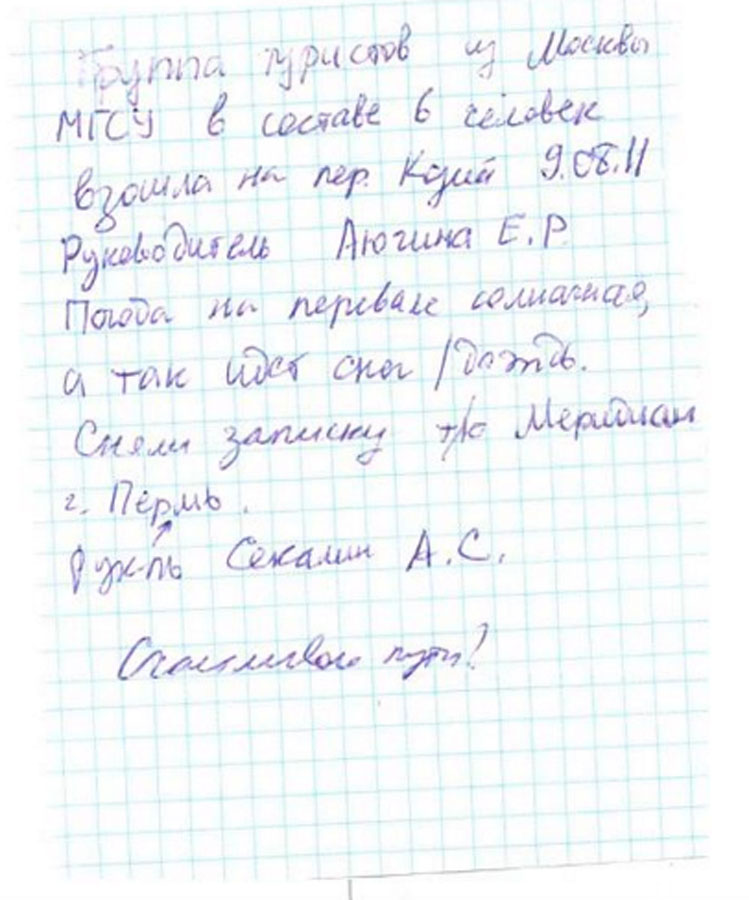 Группа туристов из Москвы
МГСУ в составе 6 человек
взошла на пер. 9.08.11
Руководитель Аюгина Е.Р.
Погода на перевале солнечная,
а так идет снег / дождь.
Сняли записку т/к Меридиан
г. Пермь.
Рук-ль А.С.
Счастливого пути!